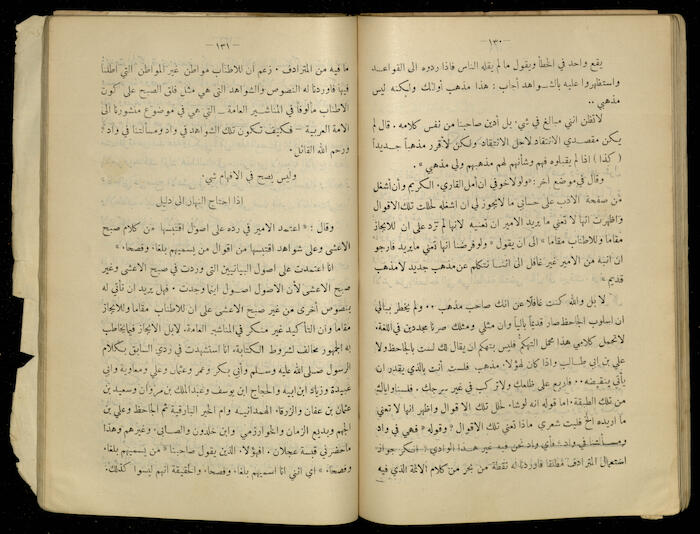 — ١٣٠ —
يقع واحد في الخطأ ويقول ما لم يقله الناس فاذا ردوه الى القواعد
واستظهروا عليه بالشواهد أجاب : هذا مذهب أولئك ولكنه ليس
مذهبي ..
لاظن أنني مبالغ في شيء. بل أدين صاحبنا من نفس كلامه . قال لم
يكن مقصدي الانتقاد لاجل الانتقاد ولكن لاقرر مذهباً جديداً
( كذا ) اذا لم يقبلوه فهم وشأنهم لهم مذهبهم ولي مذهبي » .
وقال في موضع آخر : «ولولا خوفي ان أمل القارىء الكريم وأن أشغل
من صفحة الادب على حسابي ما لايجوز لي ان اشغله لحللت تلك الاقوال
واظهرت انها لا تعني ما يريد الامير ان تعنيه لانها لم تزد على ان للايجاز
مقاما وللاطناب مقاما » الى ان يقول « ولو فرضنا انها تعني ما يريد فارجو
ان انبه من الامير غير غافل الى اننا نتكلم عن مذهب جديد لا مذهب
قديم »
لا بل والله كنت غافلاً عن انك صاحب مذهب .. ولم يخطر ببالي
ان اسلوب الجاحظ صار قديماً بالياً وان مثلي ومثلك صرنا مجددين في اللغة.
لاتحمل كلامي هذا محمل التهكم فليس بتهكم ان يقال لك لست بالجاحظ ولا
علي بن ابي طالب واذا كان لهؤلاء مذهب فلست أنت بالذي يقدر ان
يأتي بنقيضه .. فاربع على ظلعك ولا تركب في غير سرجك . فلسنا واياك
من تلك الطبقة. اما قوله انه لو شاء حلل تلك الاقوال واظهر انها لا تعني
ما اريده الخ فليت شعري ماذا تعني تلك الاقوال ? وقوله « فهي في واد
ومسألتنا في واد » فأي واد نحن فيه غير هذا الوادي ? انكر جواز
استعمال المترادف مطلقا فاوردنا له نقطة من بحر من كلام الائمة الذي فيه
— ١٣١ —
ما فيه من المترادف . زعم أن للاطناب مواطن غير المواطن التي اطلنا
فيها فاوردنا له النصوص والشواهد التي هي مثل فلق الصبح على كون
الاطناب مألوفاً في المناشير العامة — التي هي في موضوع منشورنا الى
الامة العربية — فكيف تكون تلك الشواهد في واد ومسألتنا في واد ?
ورحم الله القائل .
وليس يصح في الافهام شيء
اذا احتاج النهار الى دليل
وقال : « اعتمد الامير في رده على اصول اقتبسها من كلام صبح
الاعشى وعلى شواهد اقتبسها من اقوال من يسميهم بلغاء وفصحاء » .
انا اعتمدت على اصول البيانيين التي وردت في صبح الاعشى وغير
صبح الاعشى لأن الاصول اصول اينما وجدت . فهل يريد ان تأتي له
بنصوص أخرى من غير صبح الاعشى على ان للاطناب مقاما وللايجاز
مقاما وان التأكيد غير منكر في المناشير العامة. لا بل الايجاز فيما يخاطب
به الجمهور مخالف لشروط الكتابة. انا استشهدت في ردي السابق بكلام
الرسول صلى الله عليه وسلم وأبي بكر وعمر وعثمان وعلي ومعاوية وابي
عبيدة وزياد ابن ابيه والحجاج ابن يوسف وعبد الملك بن مروان وسعيد بن
عثمان بن عفان والزرقاء الهمدانية وام الخير البارقية ثم الجاحظ وعلي بن
الجهم وبديع الزمان والخوارزمي وابن خلدون والصابي. وغيرهم وهذا
ما حضرني قبسة عجلان . أفهؤلاء الذين يقول صاحبنا « من يسميهم بلغاء
وفصحاء » اي انني انا اسميهم بلغاء وفصحاء والحقيقة انهم ليسوا كذلك.